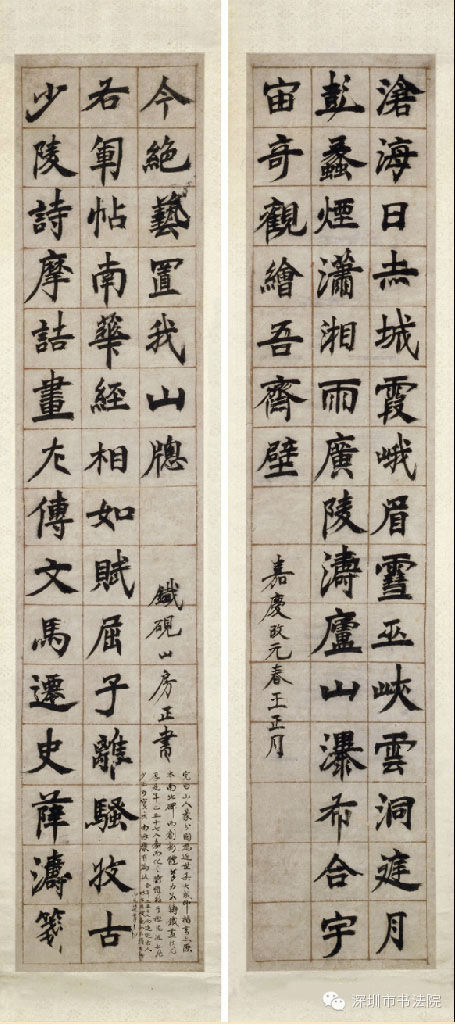 滄海日赤城霞峨眉雪巫峽雲洞庭月
彭蠡煙瀟湘雨廣陵濤廬山瀑布合宇
宙奇觀繪吾齋壁
嘉慶改元春王正月
少陵詩摩詰畫左傳文馬遷史薛濤箋
右軍帖南華經相如賦屈子離騷收古
今絕藝置我山牕
鐵硯山房正書
完白山人篆分固為近世集大成
深圳市书法院